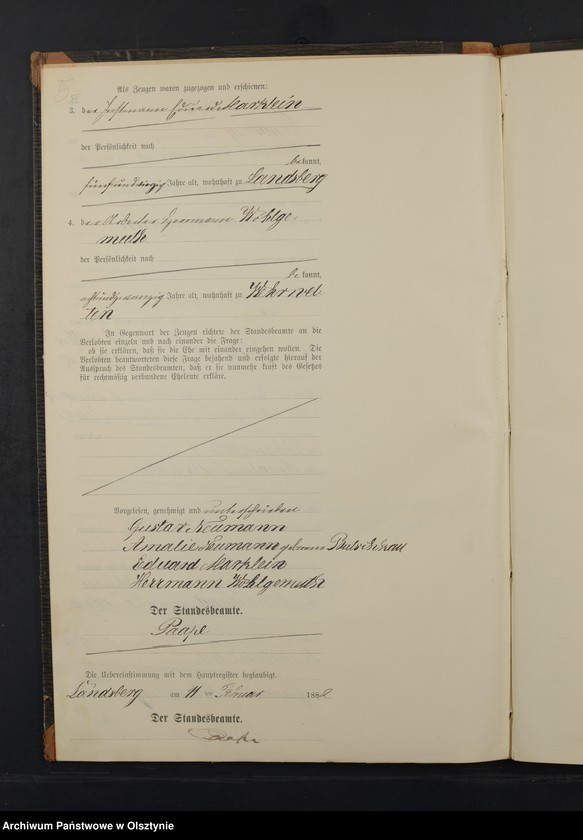 Als Zeugen waren zugezogen und erschienen:
3. der Eduard Marklein
der Persönlichkeit nach
bekannt,
fünfundvierzig Jahre alt, wohnhaft zu Landsberg
4. der Arbeiter Herrmann Wohlge-
muth
der Persönlichkeit nach
bekannt,
achtundzwanzig Jahre alt, wohnhaft zu Wehrwel-
ten
In Gegenwart der Zeugen richtete der Standesbeamte an die
Verlobten einzeln und nach einander die Frage:
ob sie erklären, daß sie die Ehe mit einander eingehen wollen. Die
Verlobten beantworteten diese Frage bejahend und erfolgte hierauf der
Ausspruch des Standesbeamten, daß er sie nunmehr kraft des Gesetzes
für rechtmäßig verbundene Eheleute erkläre.
Vorgelesen, genehmigt und unterschrieben
Gustav Neumann
Amalie Neumann geborene
Eduard Marklein
Herrmann Wohlgemuth
Der Standesbeamte.
Paape
Die Uebereinstimmung mit dem Hauptregister beglaubigt.
Landsberg am 11 ten Februar 188
Der Standesbeamte.
Paape
Archiwum Państwowe w Olsztynie